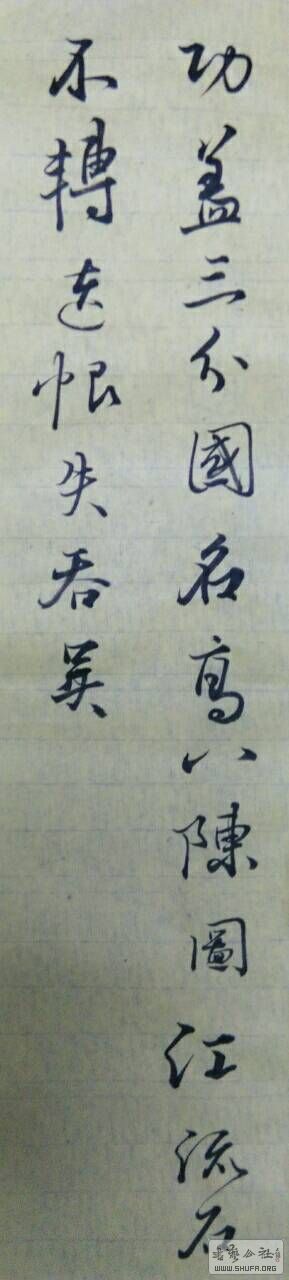 功蓋三分國名高八陳圖江流石
不轉遺恨失吞吴
WWW.SHUFA.ORG